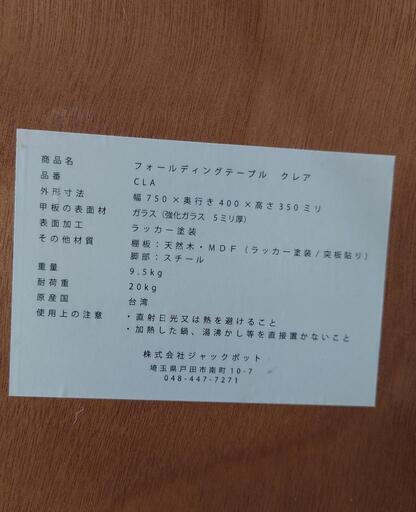 商品名 フォールディングテーブル クレア
品番 CLA
外形寸法 幅750×奥行き400×高さ350ミリ
甲板の表面材 ガラス（強化ガラス 5ミリ厚）
表面加工 ラッカー塗装
その他材質 棚板：天然木・MDF（ラッカー塗装/突板貼り）
脚部：スチール
重量 9.5kg
耐荷重 20kg
原産国 台湾
使用上の注意 ・直射日光又は熱を避けること
・加熱した鍋、湯沸かし等を直接置かないこと
株式会社ジャックポット
埼玉県戸田市南町10-7
048-447-7271